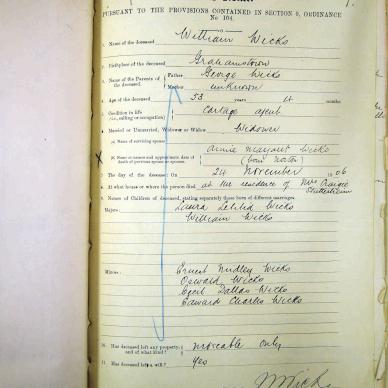 PURSUANT TO THE PROVISIONS CONTAINED IN SECTION 9, ORDINANCE
No 104.
1. Name of the deceased William Wicks
2. Birthplace of the deceased Grahamstown
3. Names of the Parents of the deceased Father George Wicks
Mother unknown
4. Age of the deceased 53 years months
5. Condition in life Cartage agent
6. Married or Unmarried, Widower or Widow Widower
(a) Name of surviving spouse
(b) Name or names and approximate date of death of previous spouse or spouses Annie Margaret Wicks
(born )
7. The day of the decease: On 24 November 06
8. At what house or where the person died at the residence of Mrs
Stutterheim
9. Names of Children of deceased, stating separately those born of different marriages.
Majors: Laura Letitia Wicks
William Wicks
Minors: Ernest Dudley Wicks
Oswald Wicks
Cecil Dallas Wicks
Edward Charles Wicks
10. Has deceased left any property, and of what kind? moveable only
11. Has deceased left a will? Yes